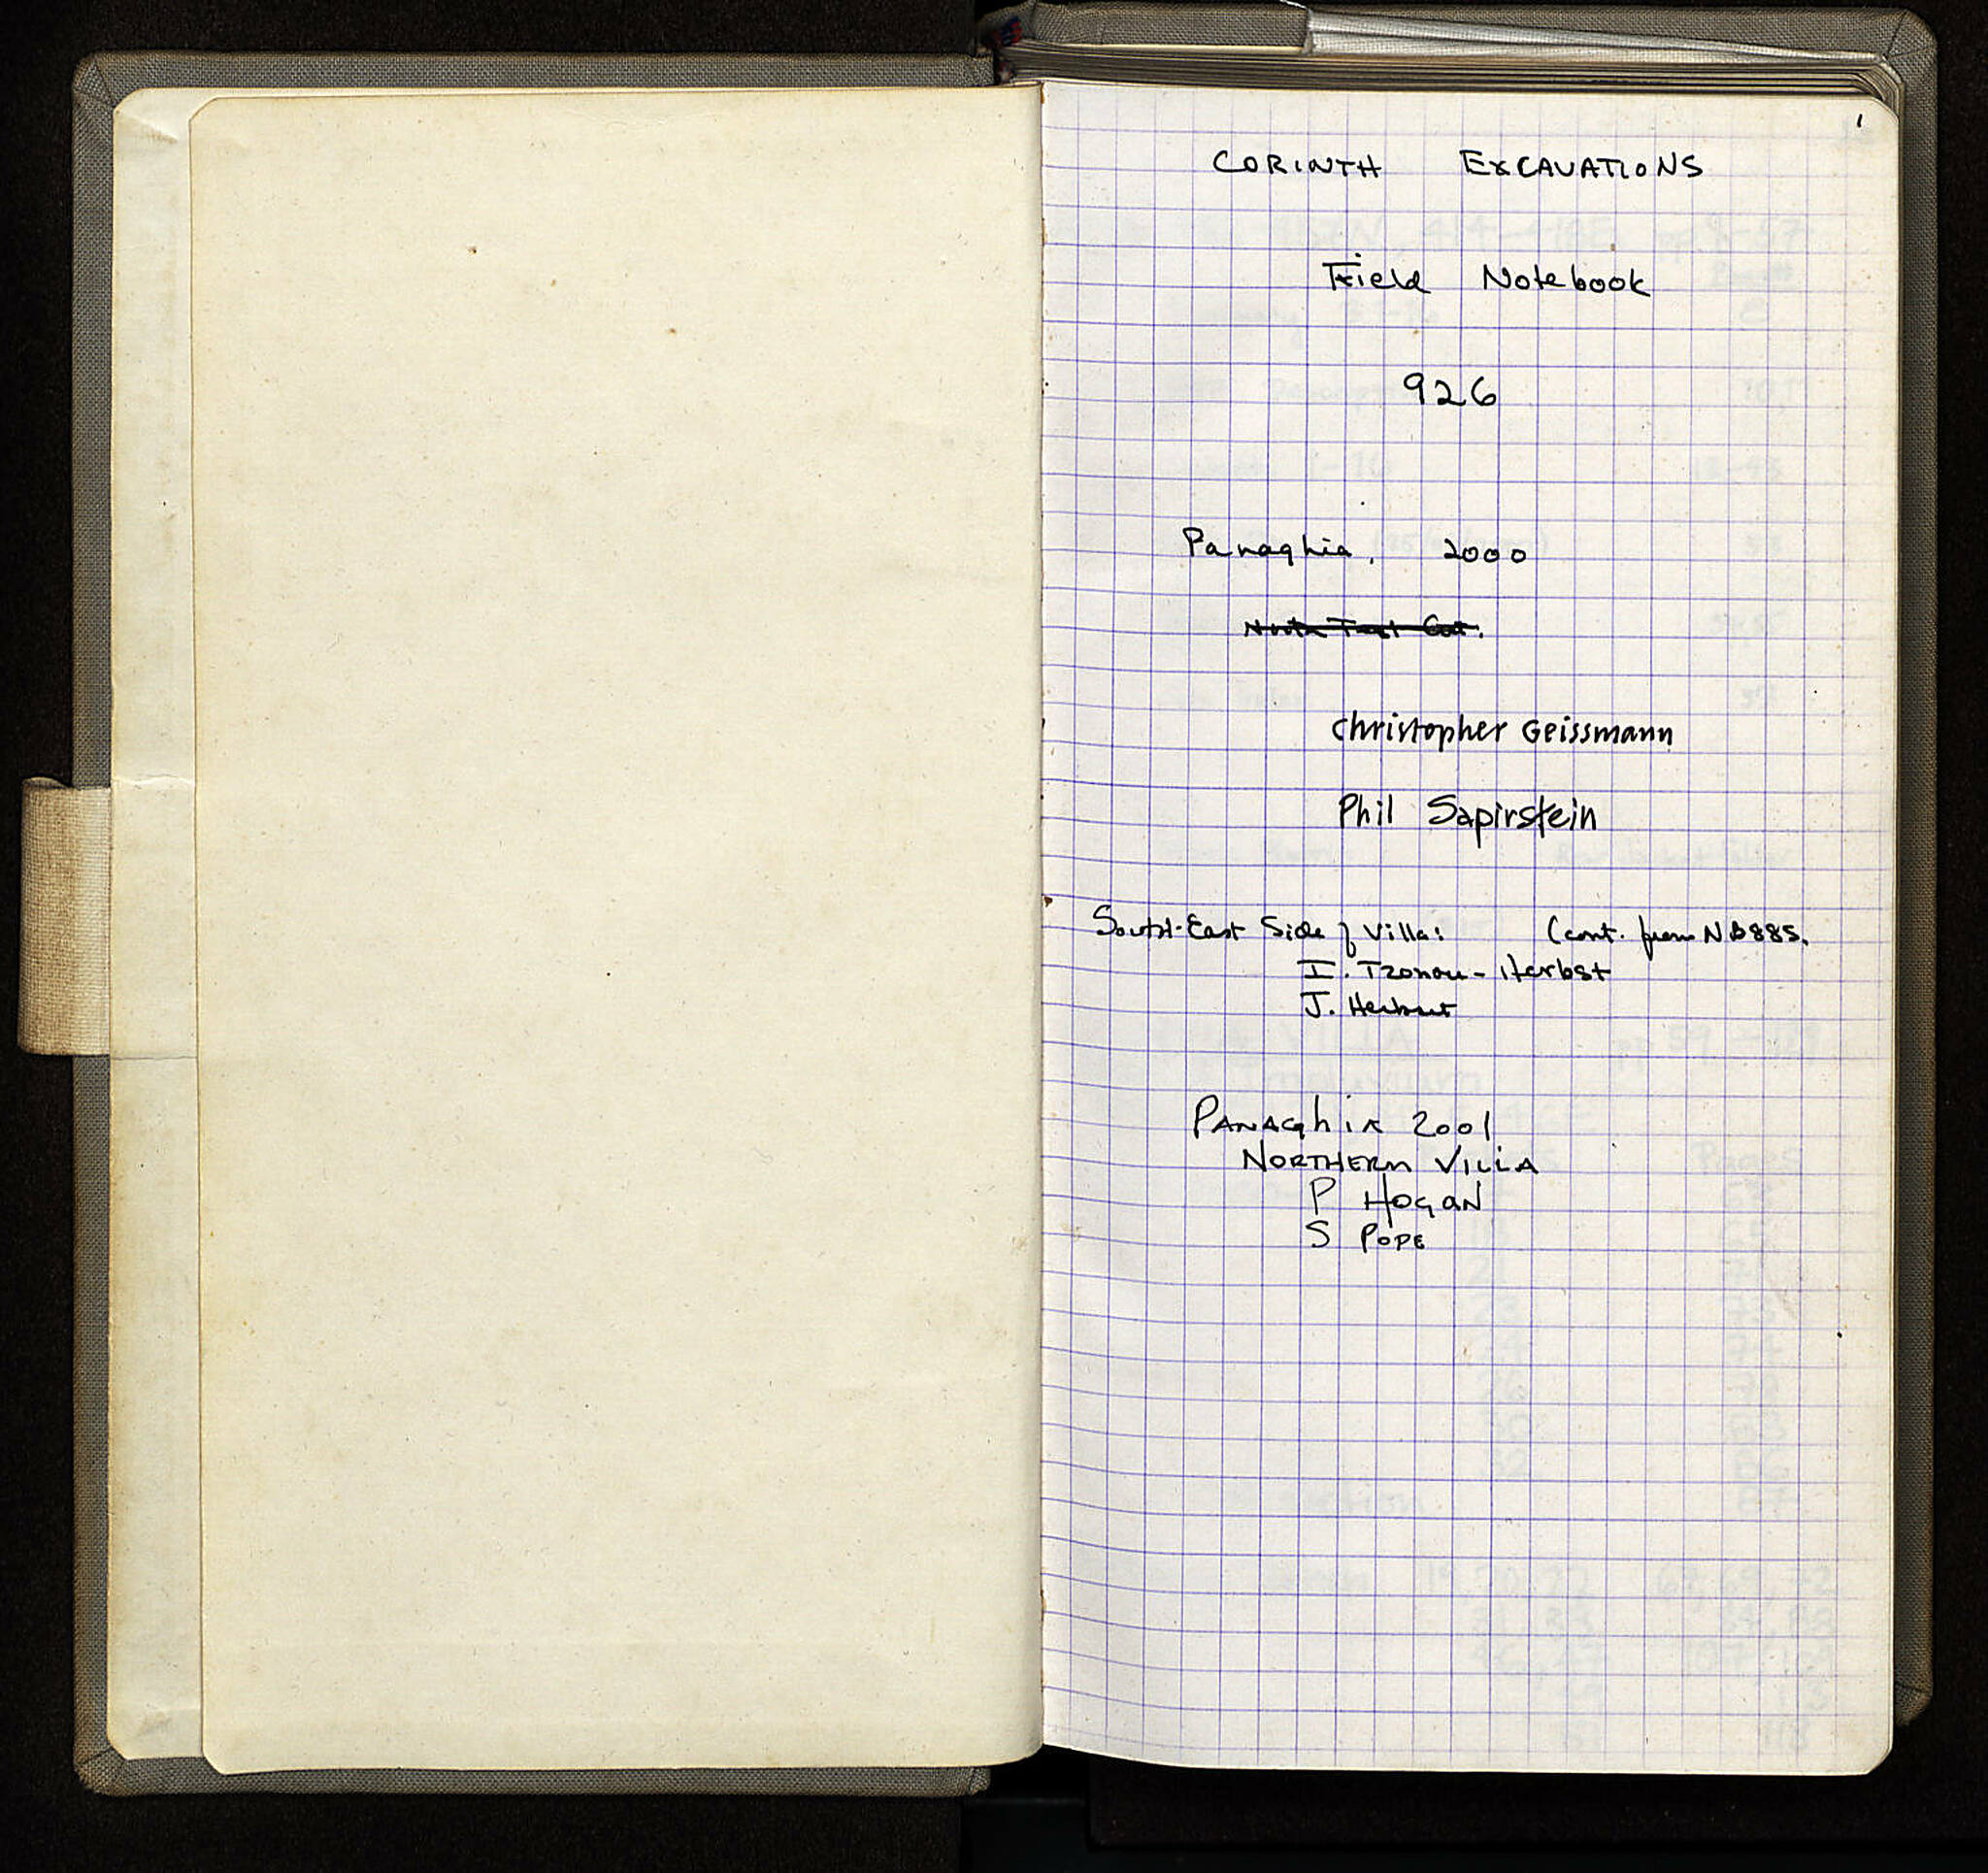 1
CORINTH EXCAVATIONS
Field Notebook
926
Panaghia, 2000
North Test Cut.
Christopher Geissmann
Phil Sapirstein
South-East Side of Villa: (cont. from NB885.
I. Tzonou-Herbst
J. Herbst
PANAGhiA 2001
NORTHERN VILLA
P HOGAN
S POPE